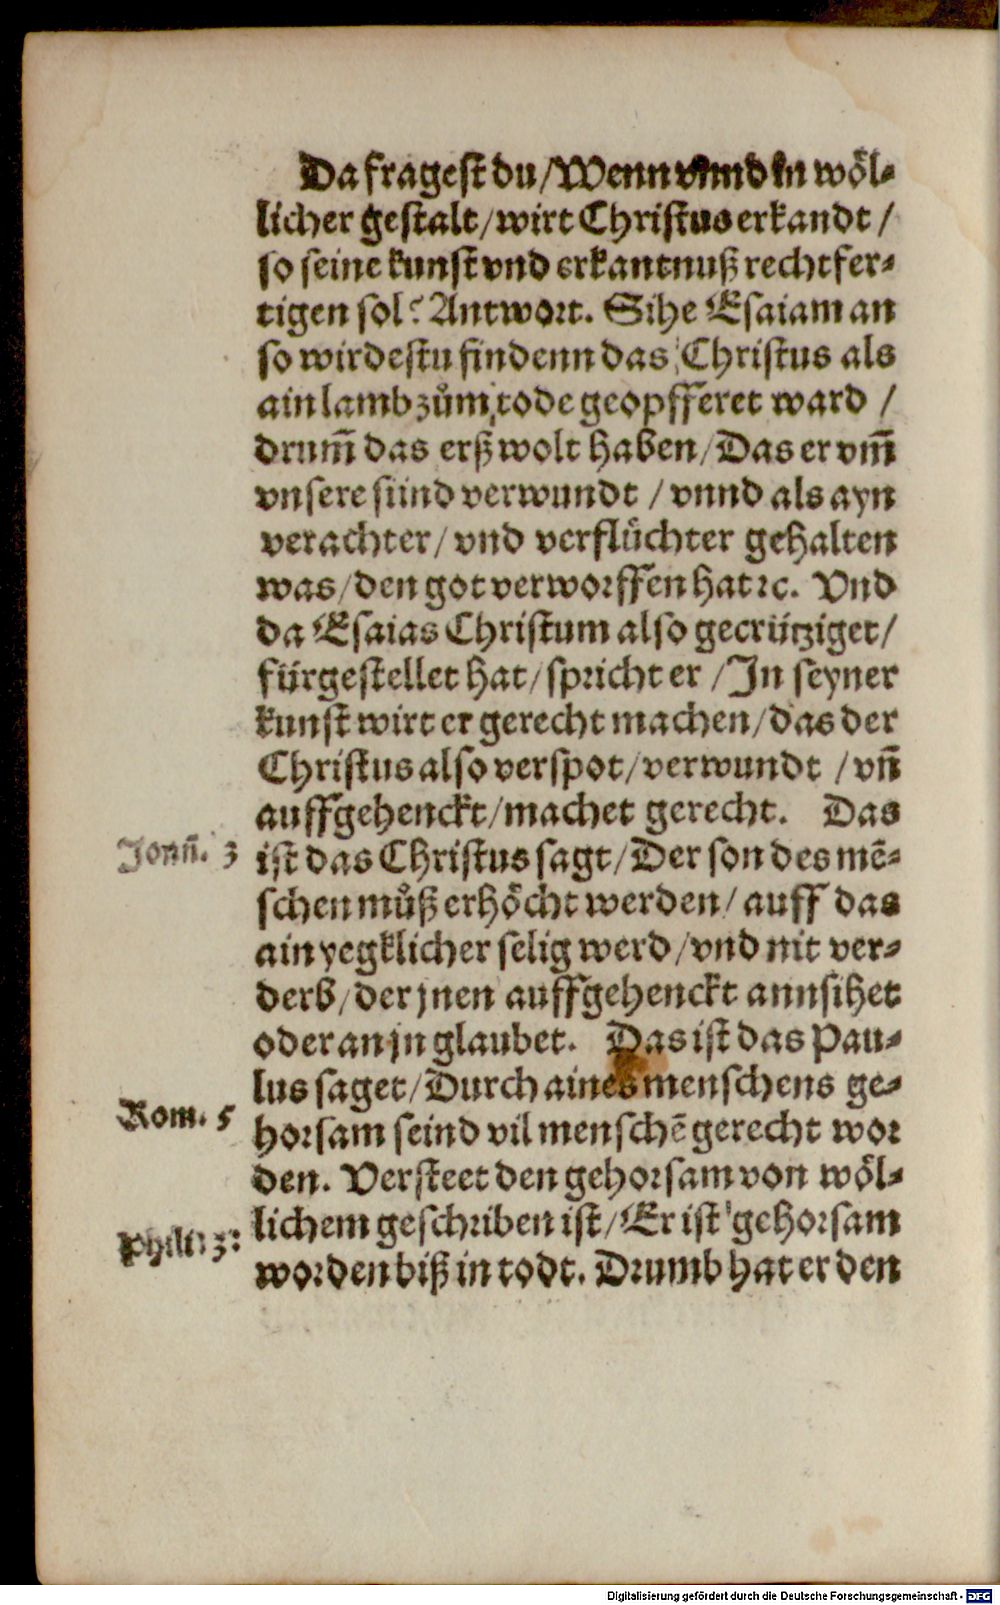 Da fragest du / Wenn vnnd in wöl-
licher gestalt / wirt Christus erkandt /
so seine kunst vnd erkantnuß rechtfer-
tigen sol? Antwort. Sihe Esaiam an
so wirdestu findenn das Christus als
ain lamb zům tode geopfferet ward /
drum̃ das erß wolt haben / Das er vm̃
vnsere sünd verwundt / vnnd als ayn
verachter / vnd verflůchter gehalten
was / den got verworffen hat ꝛc. Vnd
da Esaias Christum also gecrütziget /
fürgestellet hat / spricht er / In seyner
kunst wirt er gerecht machen / das der
Christus also verspot / verwundt / vñ
auffgehenckt / machet gerecht. Das
Joañ. 3
ist das Christus sagt / Der son des mẽ-
schen můß erhöcht werden / auff das
ain yegklicher selig werd / vnd nit ver-
derb / der jnen auffgehenckt annsihet
oder an jn glaubet. Das ist das Pau-
lus saget / Durch aines menschens ge-
Rom. 5
horsam seind vil menschẽ gerecht wor
den. Versteet den gehorsam von wöl-
lichem geschriben ist / Er ist gehorsam
worden biß in todt. Drumb hat er den
Digitalisierung gefördert durch die Deutsche Forschungsgemeinschaft - DFG